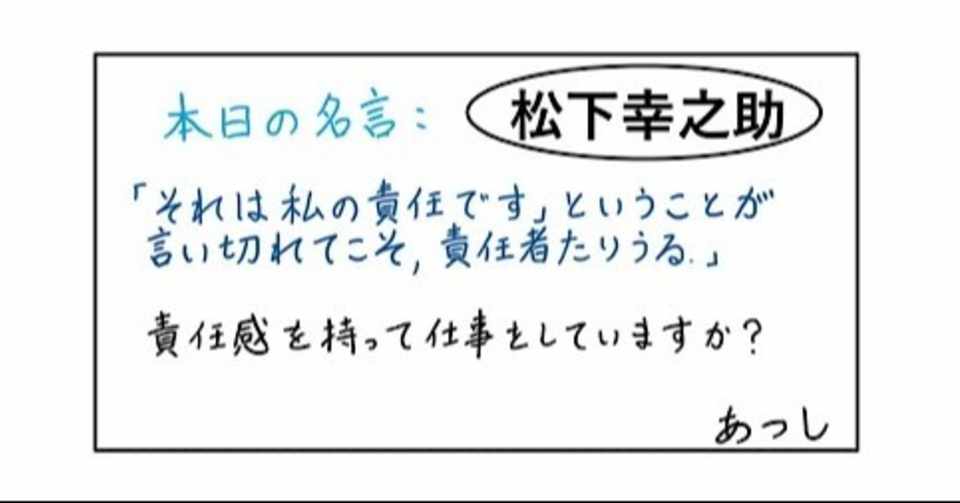 本日の名言： 松下幸之助
「それは私の責任です」ということが
言い切れてこそ, 責任者たりうる.」
責任感を持って仕事をしていますか？
あつし